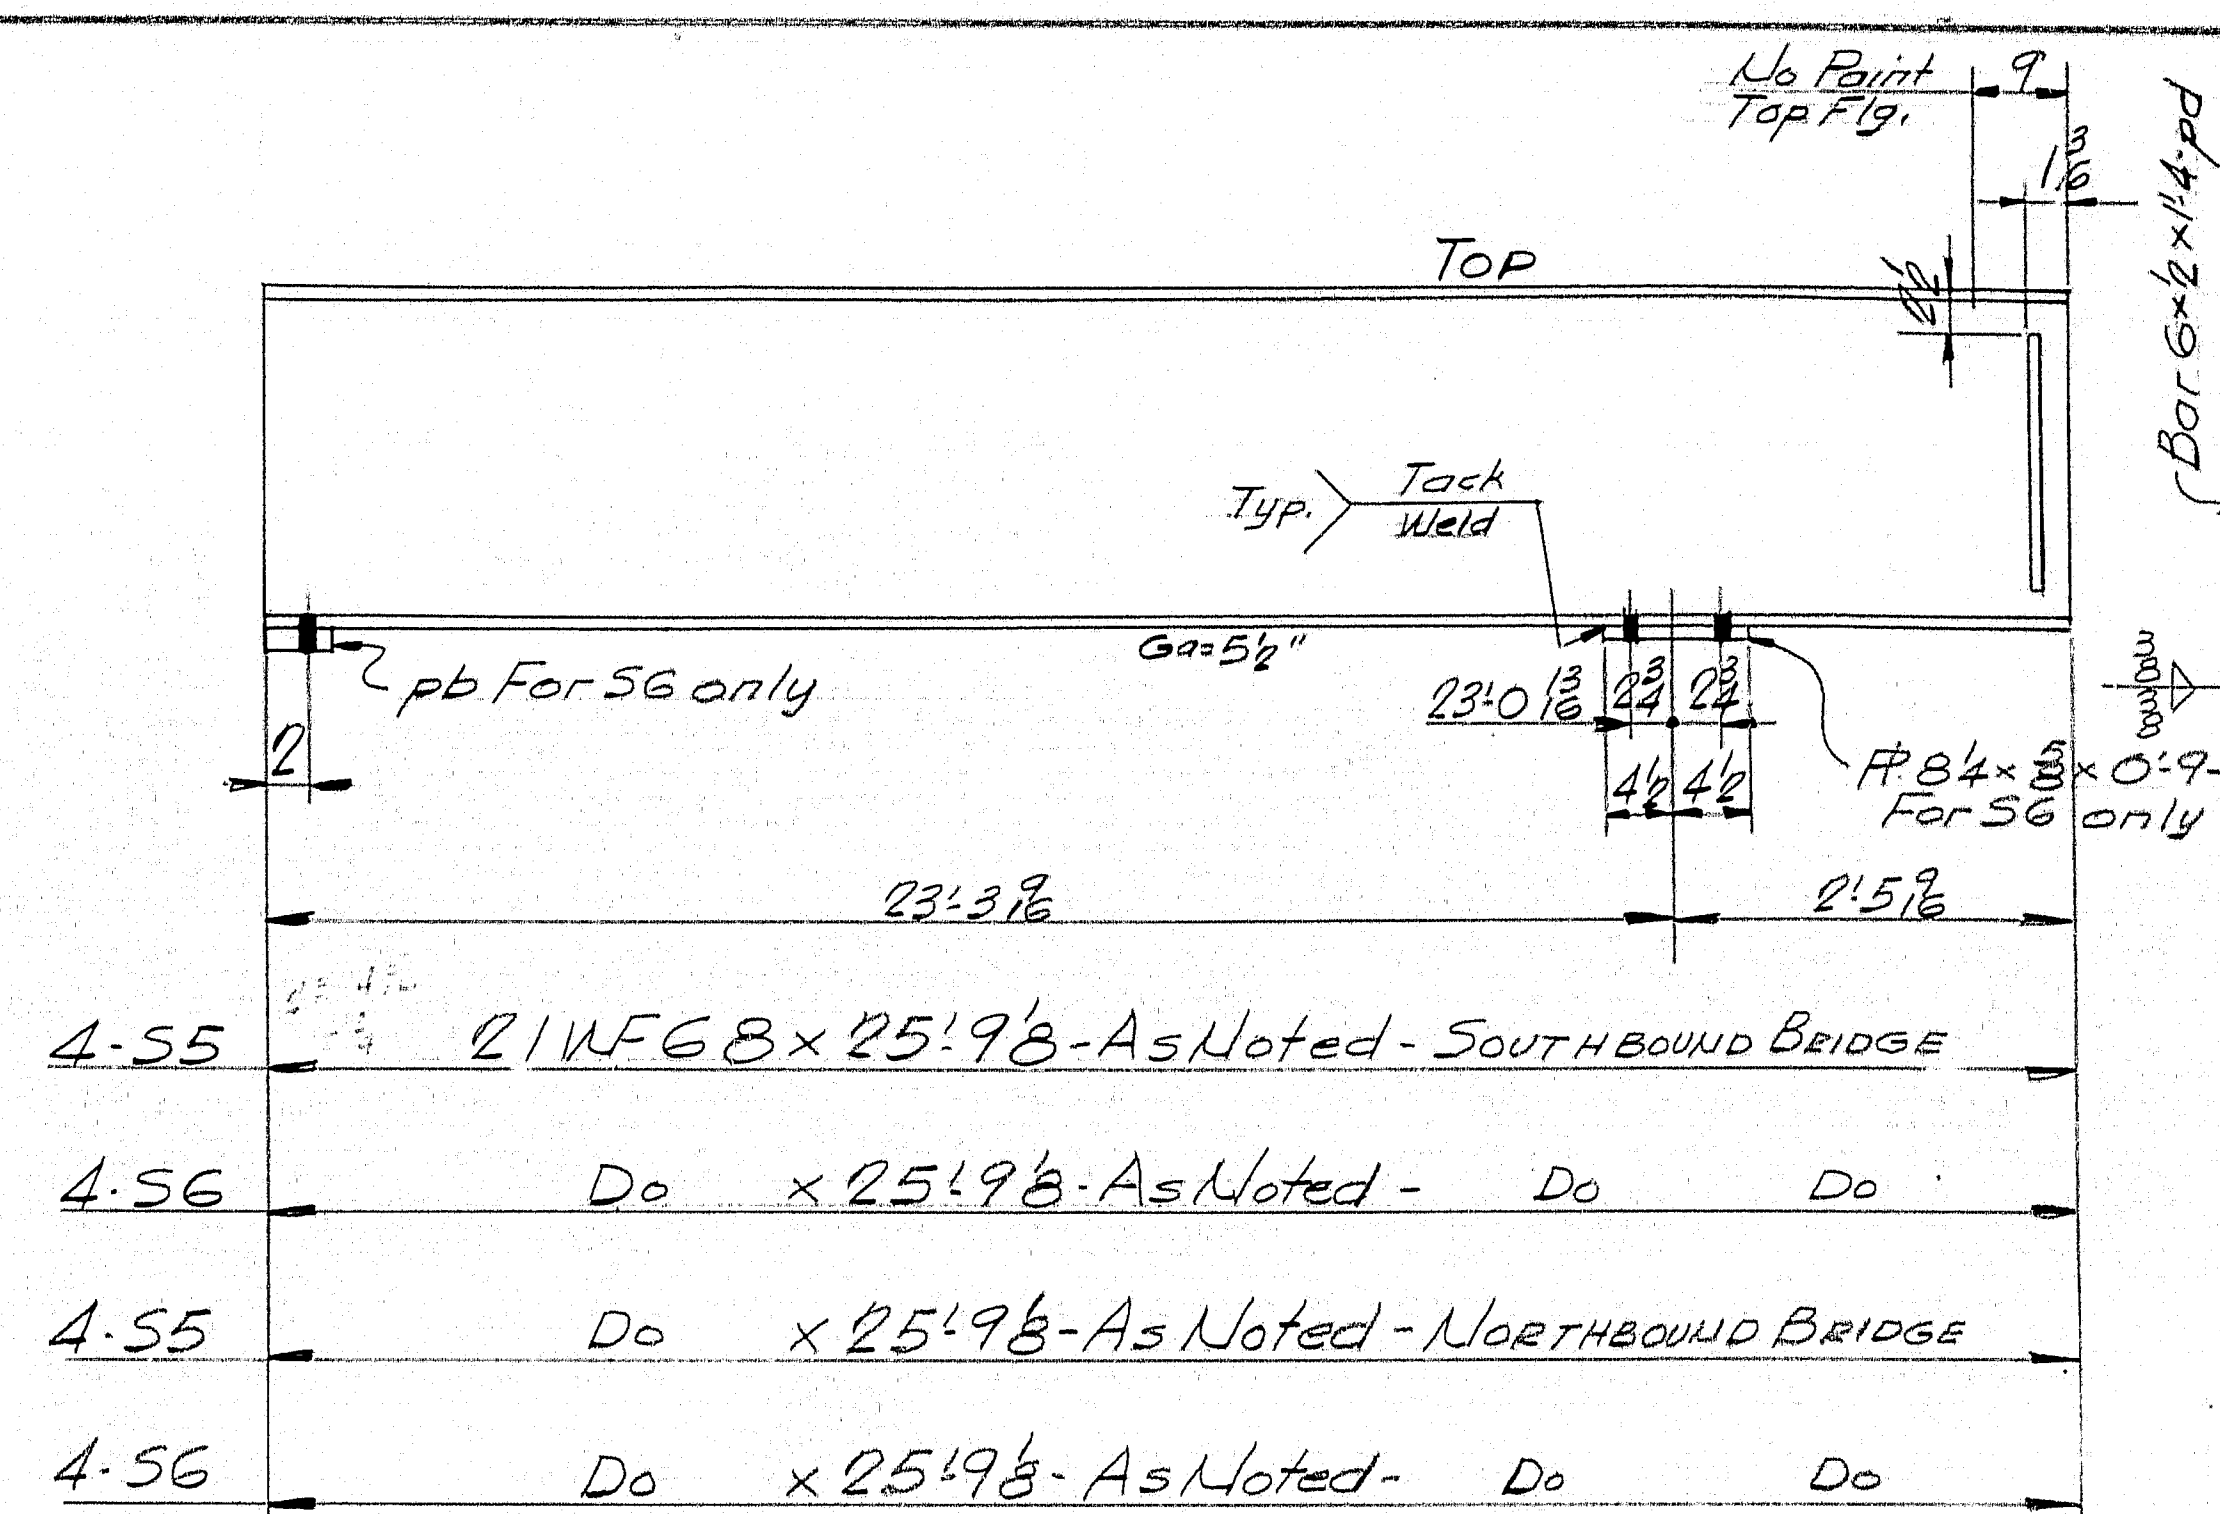 No Paint
Top Flg.
9
1 3/16
Bar 6 x 1/2 x 1'-4-pd
TOP
2 1/2
Typ.
Tack
Weld
Ga=5 1/2"
pb For S6 only
2
23'-0 13/16
2 3/4
2 3/4
3/8
3/8
4 1/2
4 1/2
PL 8 1/4 x 5/8 x 0'-9-
For S6 only
23'-3 9/16
2'-5 9/16
4-S5 21 WF 68 x 25'-9 1/8 - As Noted - SOUTHBOUND BRIDGE
4-S6 Do x 25'-9 1/8 - As Noted - Do Do
4-S5 Do x 25'-9 1/8 - As Noted - NORTHBOUND BRIDGE
4-S6 Do x 25'-9 1/8 - As Noted - Do Do